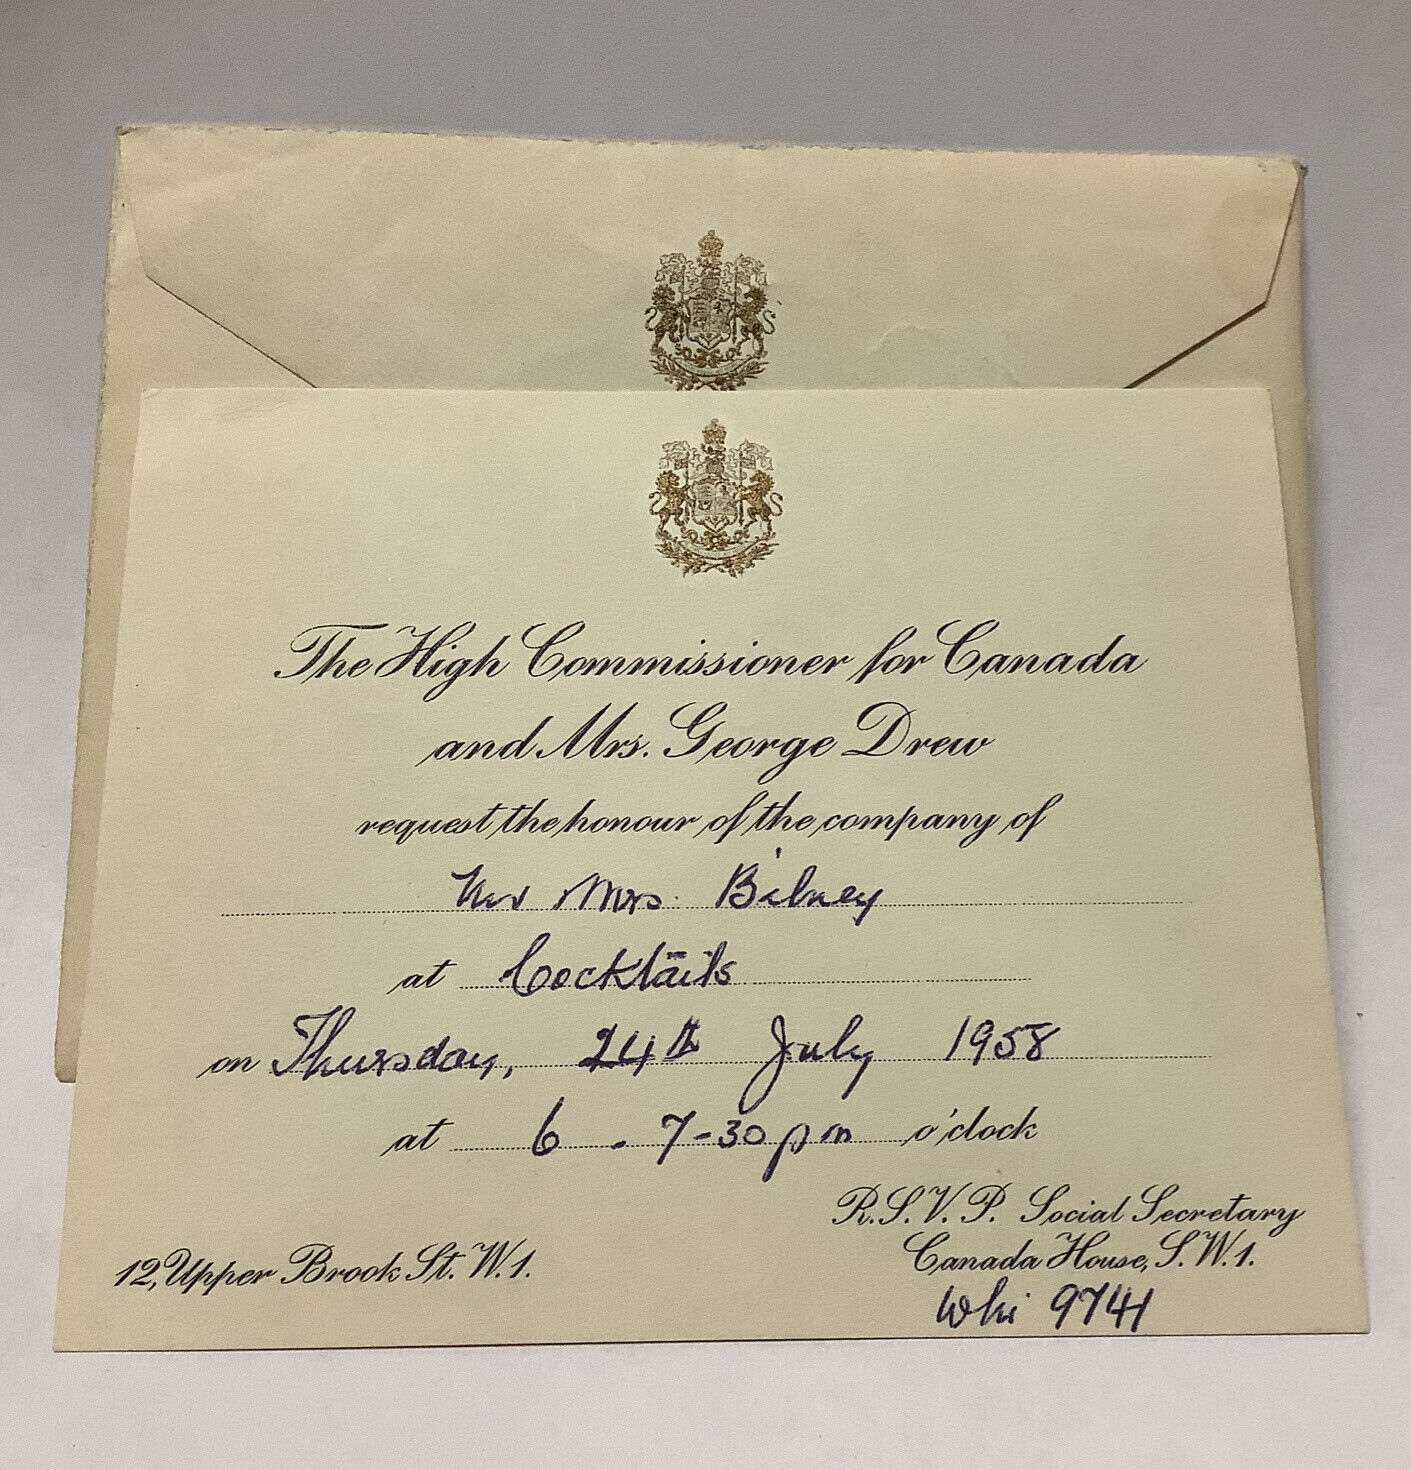 The High Commissioner for Canada
and Mrs. George Drew
request the honour of the company of
Mrs. Bilney
at Cocktails
on Thursday, 24th July 1958
at 6 - 7-30 pm o'clock
R.S.V.P. Social Secretary
Canada House, S.W.1.
Whi 9741
12, Upper Brook St. W.1.